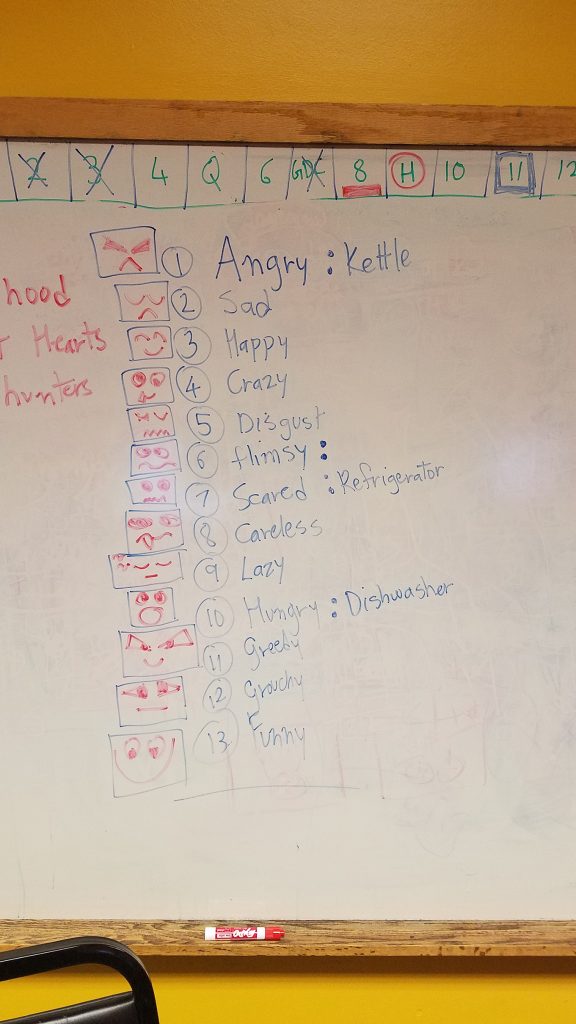 2 3 4 Q 6 8 H 10 11 12
1 Angry : Kettle
hood
2 Sad
Hearts
3 Happy
hunters
4 Crazy
5 Disgust
6 flimsy :
7 Scared : Refrigerator
8 Careless
9 Lazy
10 Hungry : Dishwasher
11 Greedy
12 Grouchy
13 Funny
EXPO